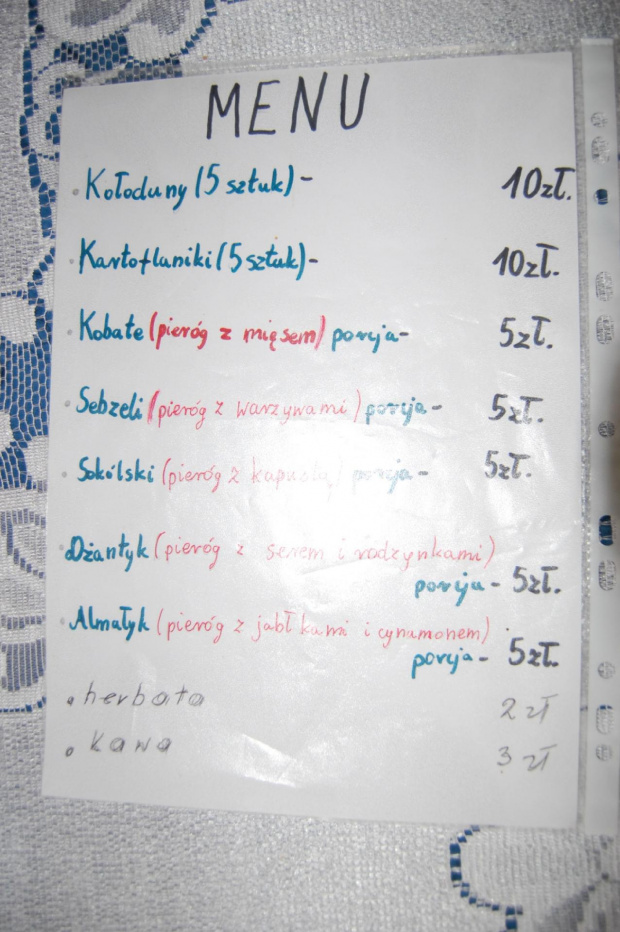 MENU
Kołoduny (5 sztuk) - 10zł.
Kartoflaniki (5 sztuk) - 10zł.
Kobate (pieróg z mięsem) porcja - 5zł.
Sebzeli (pieróg z warzywami) porcja - 5zł.
Sokólski (pieróg z kapustą) porcja - 5zł.
Dżantyk (pieróg z serem i rodzynkami)
porcja - 5zł.
Almatyk (pieróg z jabłkami i cynamonem)
porcja - 5zł.
herbata 2 zł
kawa 3 zł